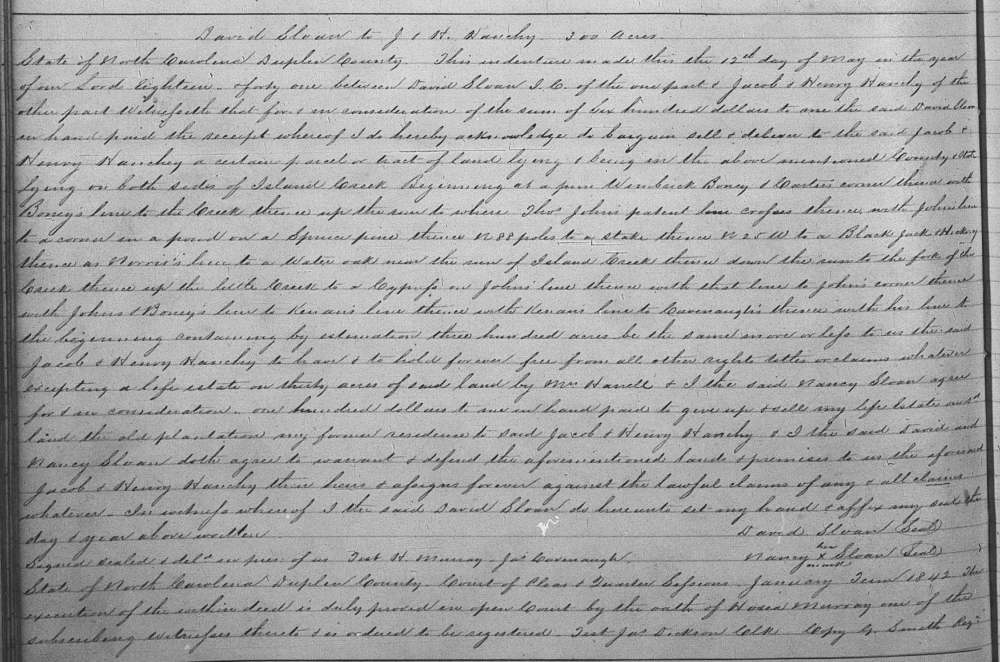 David Sloan to J & H. Hanchy 300 Acres.
State of North Carolina Duplin County. This indenture made this the 12th day of May in the year
of our Lord Eighteen & forty one between David Sloan of the one part & Jacob & Henry Hanchy of the
other part Witnesseth that for & in consideration of the sum of six hundred dollars to me the said David Sloan
in hand paid the receipt whereof I do hereby acknowledge do bargain sell & deliver to the said Jacob &
Henry Hanchey a certain parcel or tract of land lying & being in the above mentioned County & State
lying on both sides of Island Creek Beginning at a pine Boney & Carters corner thence with
Boney's line to the Creek thence up the run to where Thos Johns patent line crosses thence with Johns line
to a corner in a pond on a Spruce pine thence N 88 poles to a stake thence N 20 W to a Black Jack & Hickory
thence as Norris's line to a Water oak near the run of Island Creek thence down the run to the fork of the
Creek thence up the little Creek to a Cypress on Johns line thence with that line to Johns corner thence
with Johns & Boney's line to Kenans line thence with Kenans line to Cavenaugh's thence with his line to
the beginning containing by estimation three hundred acres be the same more or less to us the said
Jacob & Henry Hanchy to have & to hold forever free from all other rights titles or claims whatever
excepting a life estate on thirty acres of said land by Mrs Harrell & I the said Nancy Sloan agree
for & in consideration one hundred dollars to me in hand paid to give up & sell my life Estate on sd
land the old plantation my former residence to said Jacob & Henry Hanchy & I the said David and
Nancy Sloan doth agree to warrant & defend the aforementioned lands & premises to us the aforesaid
Jacob & Henry Hanchy their heirs & assigns forever against the lawful claims of any & all claims
whatever In witness whereof I the said David Sloan do hereunto set my hand & affix my seal the
day & year above written David Sloan (Seal)
Signed sealed & deld in pres. of us Test H. Murray Jas Cavenaugh. Nancy her x mark Sloan (Seal)
State of North Carolina Duplin County Court of Pleas & Quarter Sessions January Term 1842 The
execution of the within deed is duly proved in open Court by the oath of Hosea Murray one of the
subscribing witnesses thereto & is ordered to be registered. Test Jas Dickson Clk Copy G. Smith Regr